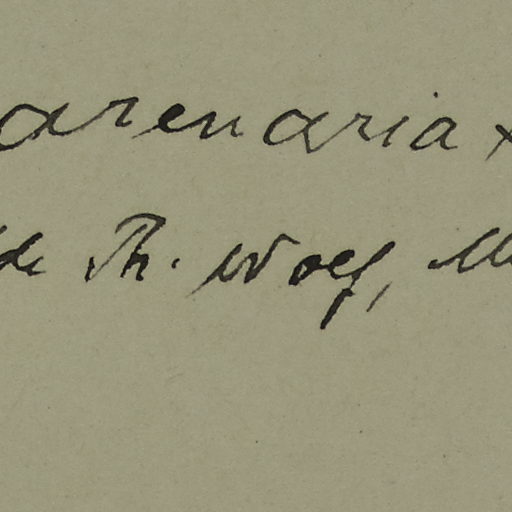 arenaria ×
de Th. Wolf, M